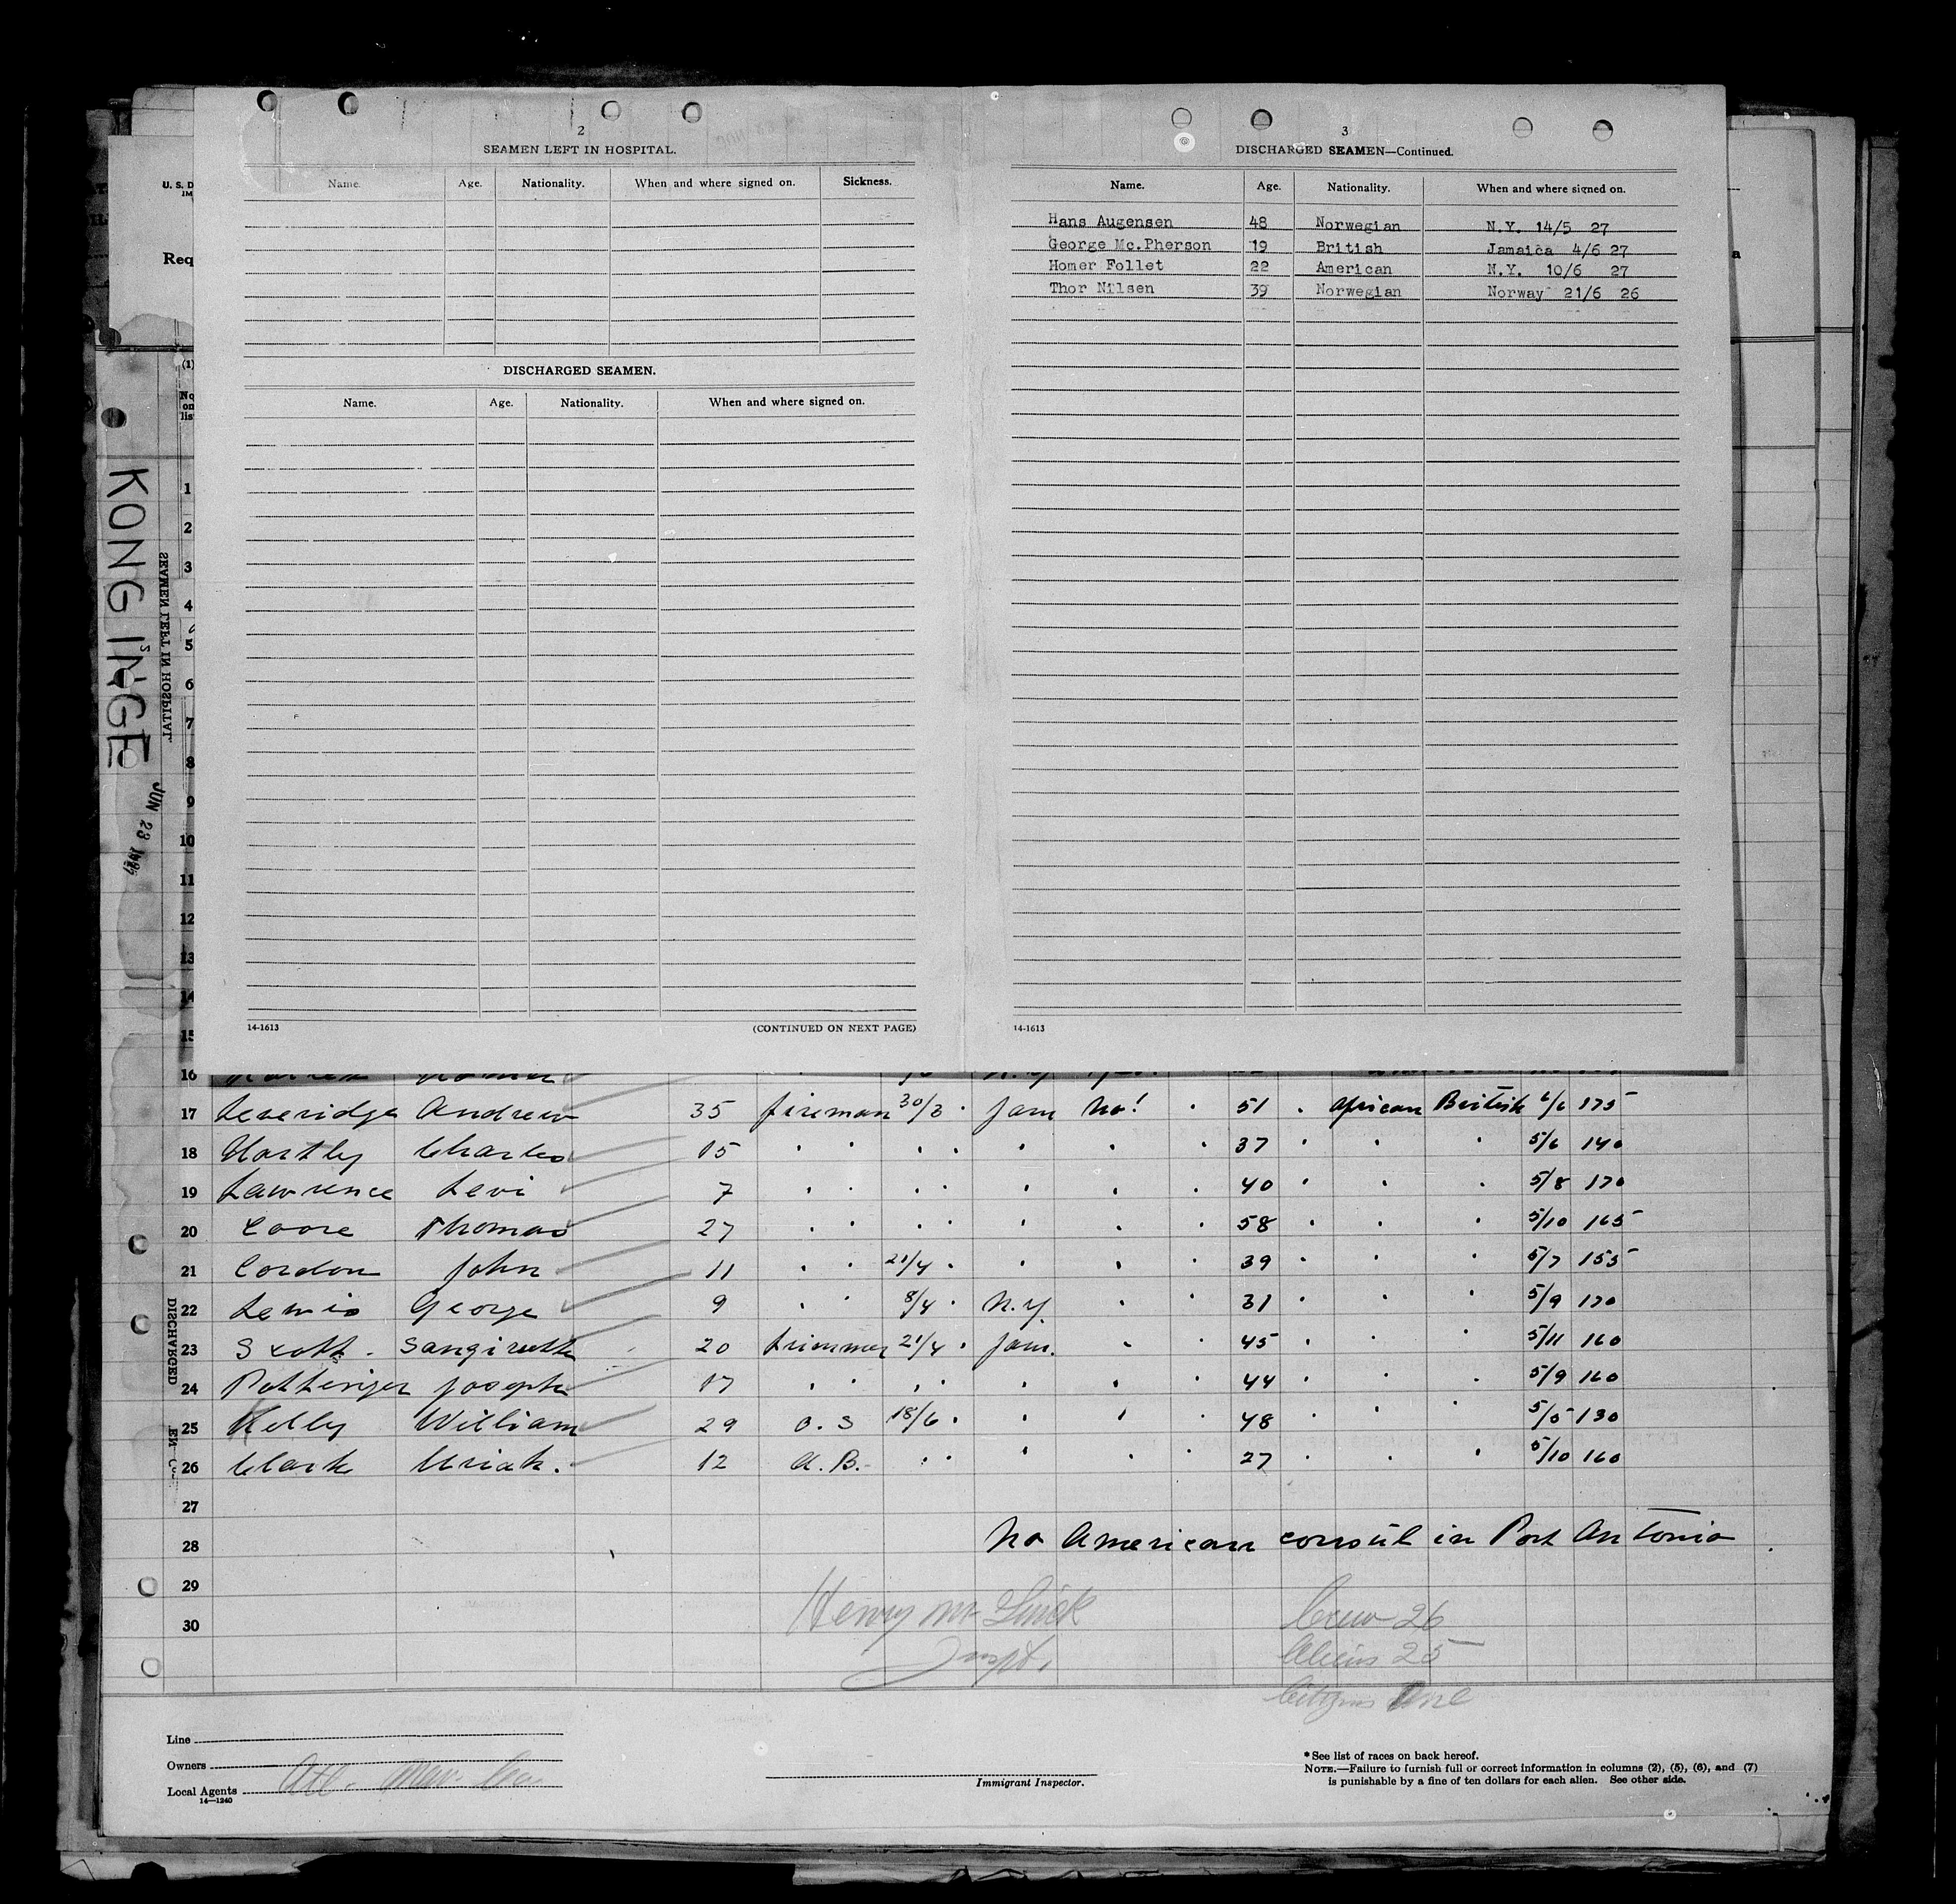 2
SEAMEN LEFT IN HOSPITAL.
Name. Age. Nationality. When and where signed on. Sickness.
DISCHARGED SEAMEN.
Name. Age. Nationality. When and where signed on.
14-1613 (CONTINUED ON NEXT PAGE)
3
DISCHARGED SEAMEN—Continued.
Name. Age. Nationality. When and where signed on.
Hans Augensen 48 Norwegian N.Y. 14/5 27
George Mc.Pherson 19 British Jamaica 4/6 27
Homer Follet 22 American N.Y. 10/6 27
Thor Nilsen 39 Norwegian Norway 21/6 26
14-1613
U. S. D
IM
Req
a
(1)
No
on
lis
KONG INGE
SEAMEN LEFT IN HOSPITAL
JUN 23
DISCHARGED
1
2
3
4
5
6
7
8
9
10
11
12
13
14
15
16
17 Leveridge Andrew 35 fireman 30/3 Jam No! 51 African British 6/6 175
18 Hartley Charles 15 37 5/6 140
19 Lawrence Levi 7 40 5/8 170
20 Coore Thomas 27 58 5/10 165
21 Cordon John 11 21/4 39 5/7 155
22 Lewis George 9 8/4 N.Y 31 5/9 170
23 Scott 20 trimmer 21/4 Jam. 45 5/11 160
24 Pottinger Joseph 17 44 5/9 160
25 Kelly William 29 O. S 18/6 48 5/5 130
26 Clark Uriah. 12 A. B. 27 5/10 160
27
28 No American consul in Port Antonio
29
30
Henry
Inspt.
Crew 26
Aliens 25
Citizens One
Line
Owners
Local Agents Atl. Mar. Co.
14—1240
Immigrant Inspector.
*See list of races on back hereof.
NOTE.—Failure to furnish full or correct information in columns (2), (5), (6), and (7)
is punishable by a fine of ten dollars for each alien. See other side.